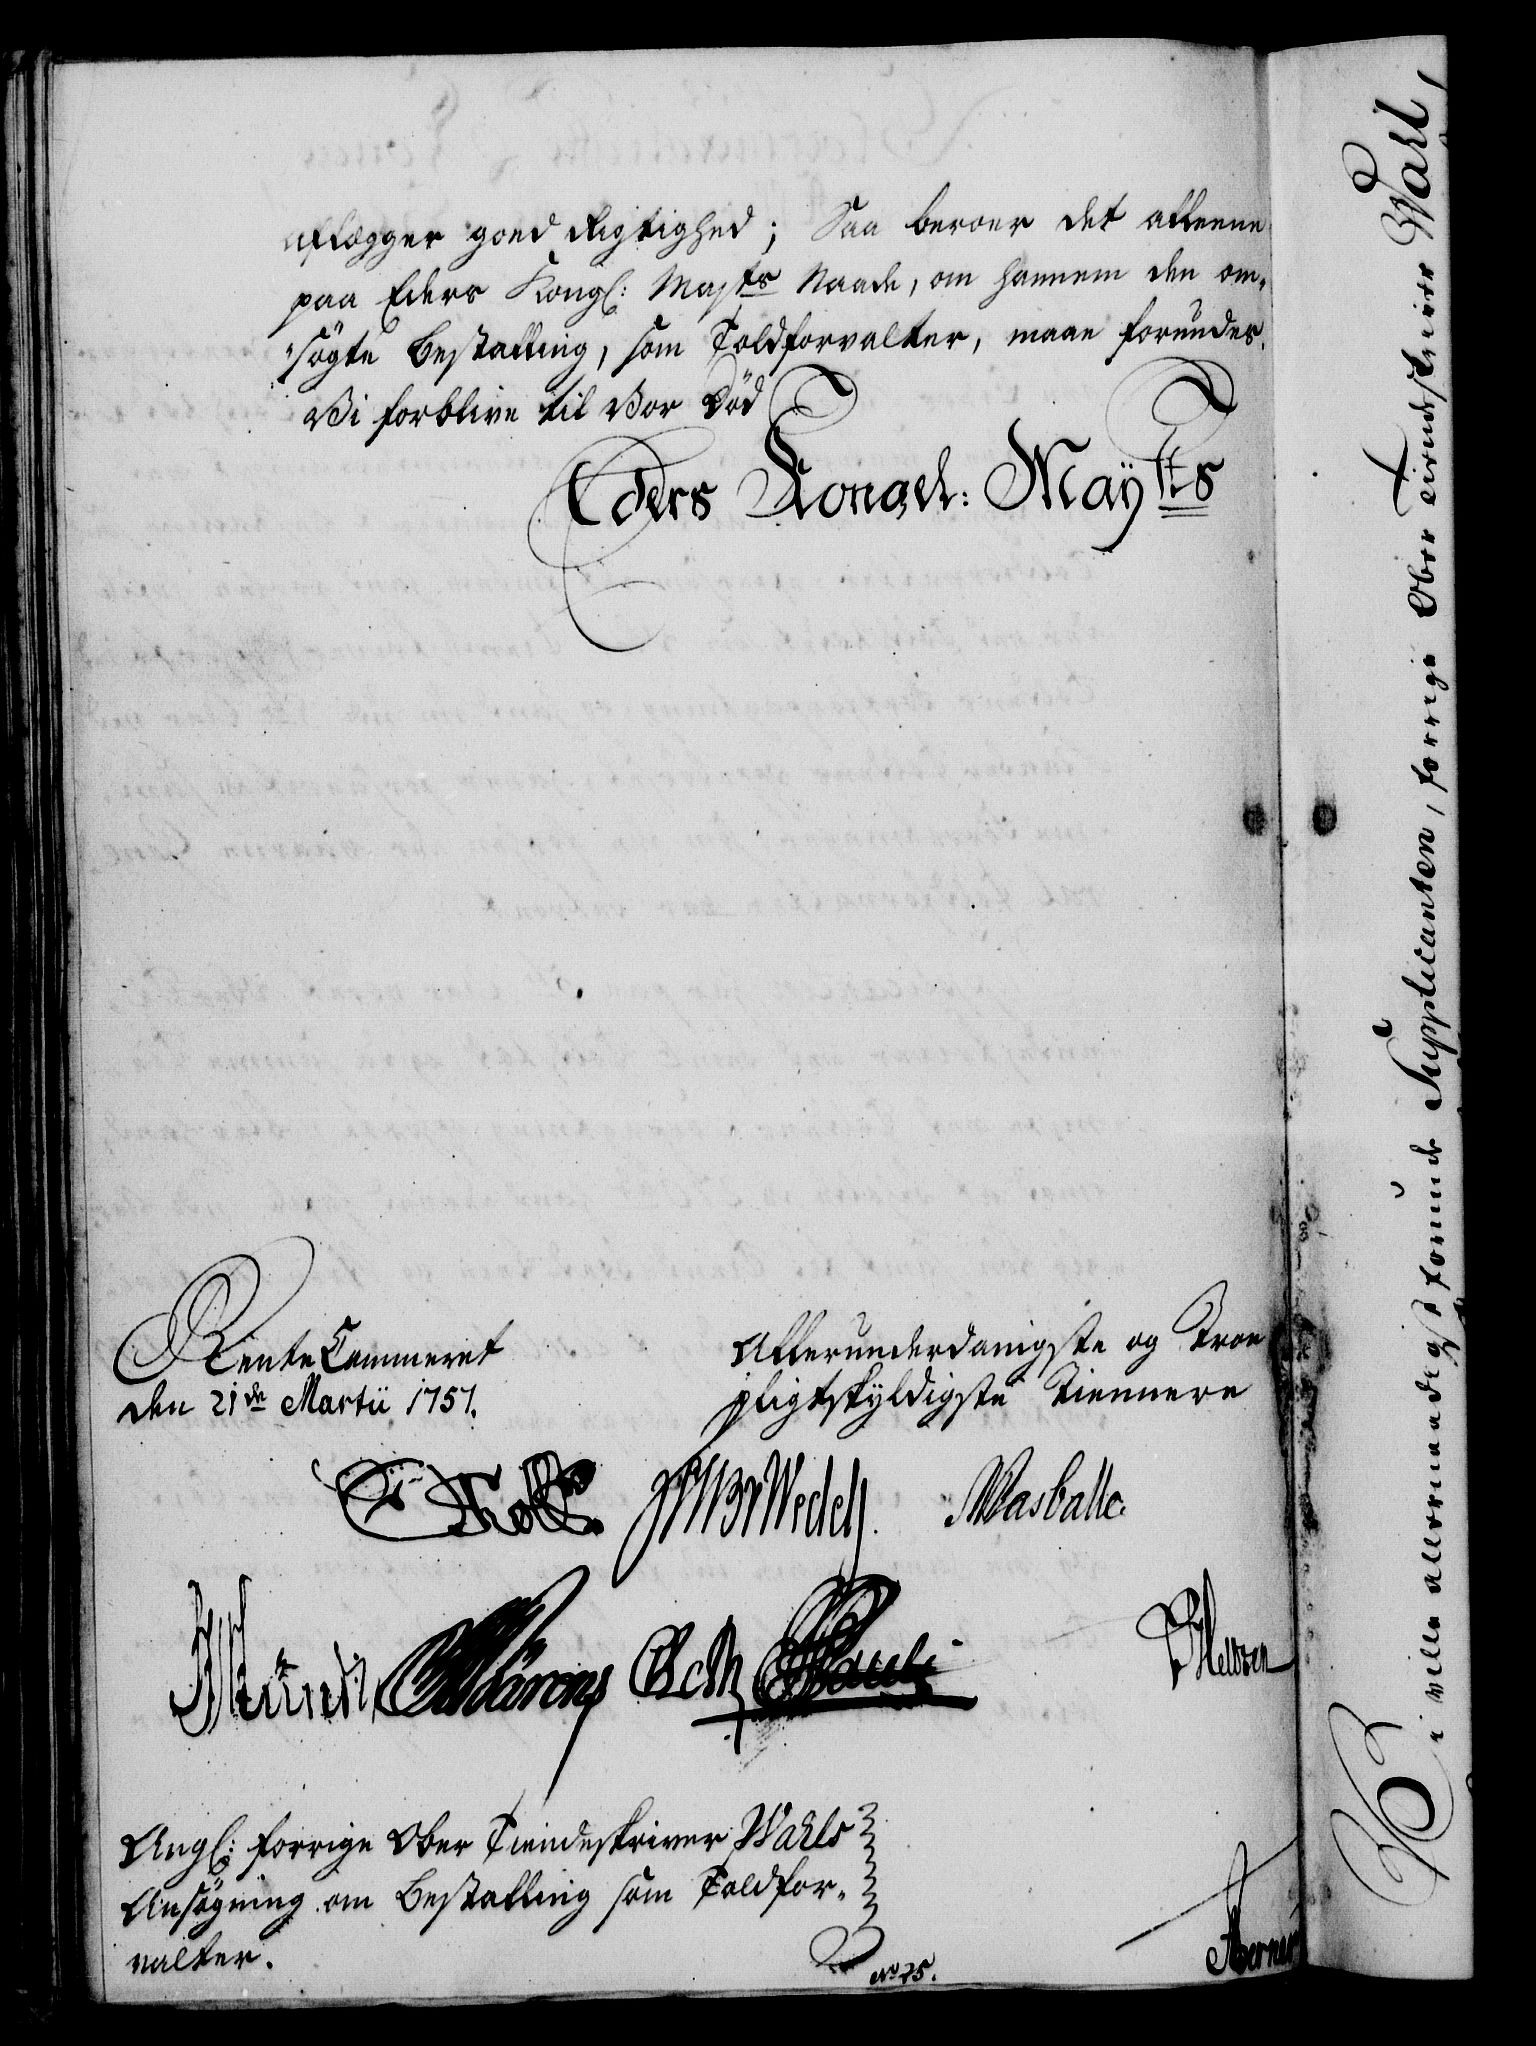 aflægger goed Rigtighed; Saa beroer det alleene
paa Eders Kongl: Mayts Naade, om hannem den om-
søgte Bestalling, som Toldforvalter, maae forundes.
Vi forblive til Vor Død
Eders Kongel: Mayts
RenteCammeret
den 21de Martii 1757.
Allerunderdanigste og Troe
pligtskyldigste Tiennere
Holst
Wedell
Wasballe.
Pauli
Angl: forrige Ober Tiendeskriver Wahls
Ansøgning om Bestalling som Toldfor-
valter.
No 25.
Vi ville allernaadigst forunde Supplicanten, forrige Ober Tiendeskriver Wahl,